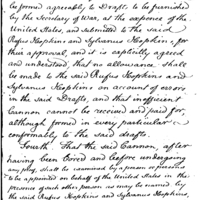 be formed agreeably to Drafts to be furnished
by the Secretary of War, at the expence of the
United States, and submitted to the said
Rufus Hopkins and Sylvanus Hopkins, for
their approval, and it is explicitly agreed
and understood, that no allowance shall
be made to the said Rufus Hopkins and
Sylvanus Hopkins on account of errors
in the said Drafts, and that insufficient
Cannon cannot be received and paid for
although formed in every particular
conformably to the said drafts.
Fourth That the said Cannon, after
having been bored and before undergoing
any proof, shall be examined by a person or persons
to be appointed on behalf of the United States in the
presence of such other person as may be named by
the said Rufus Hopkins and Sylvanus Hopkins,